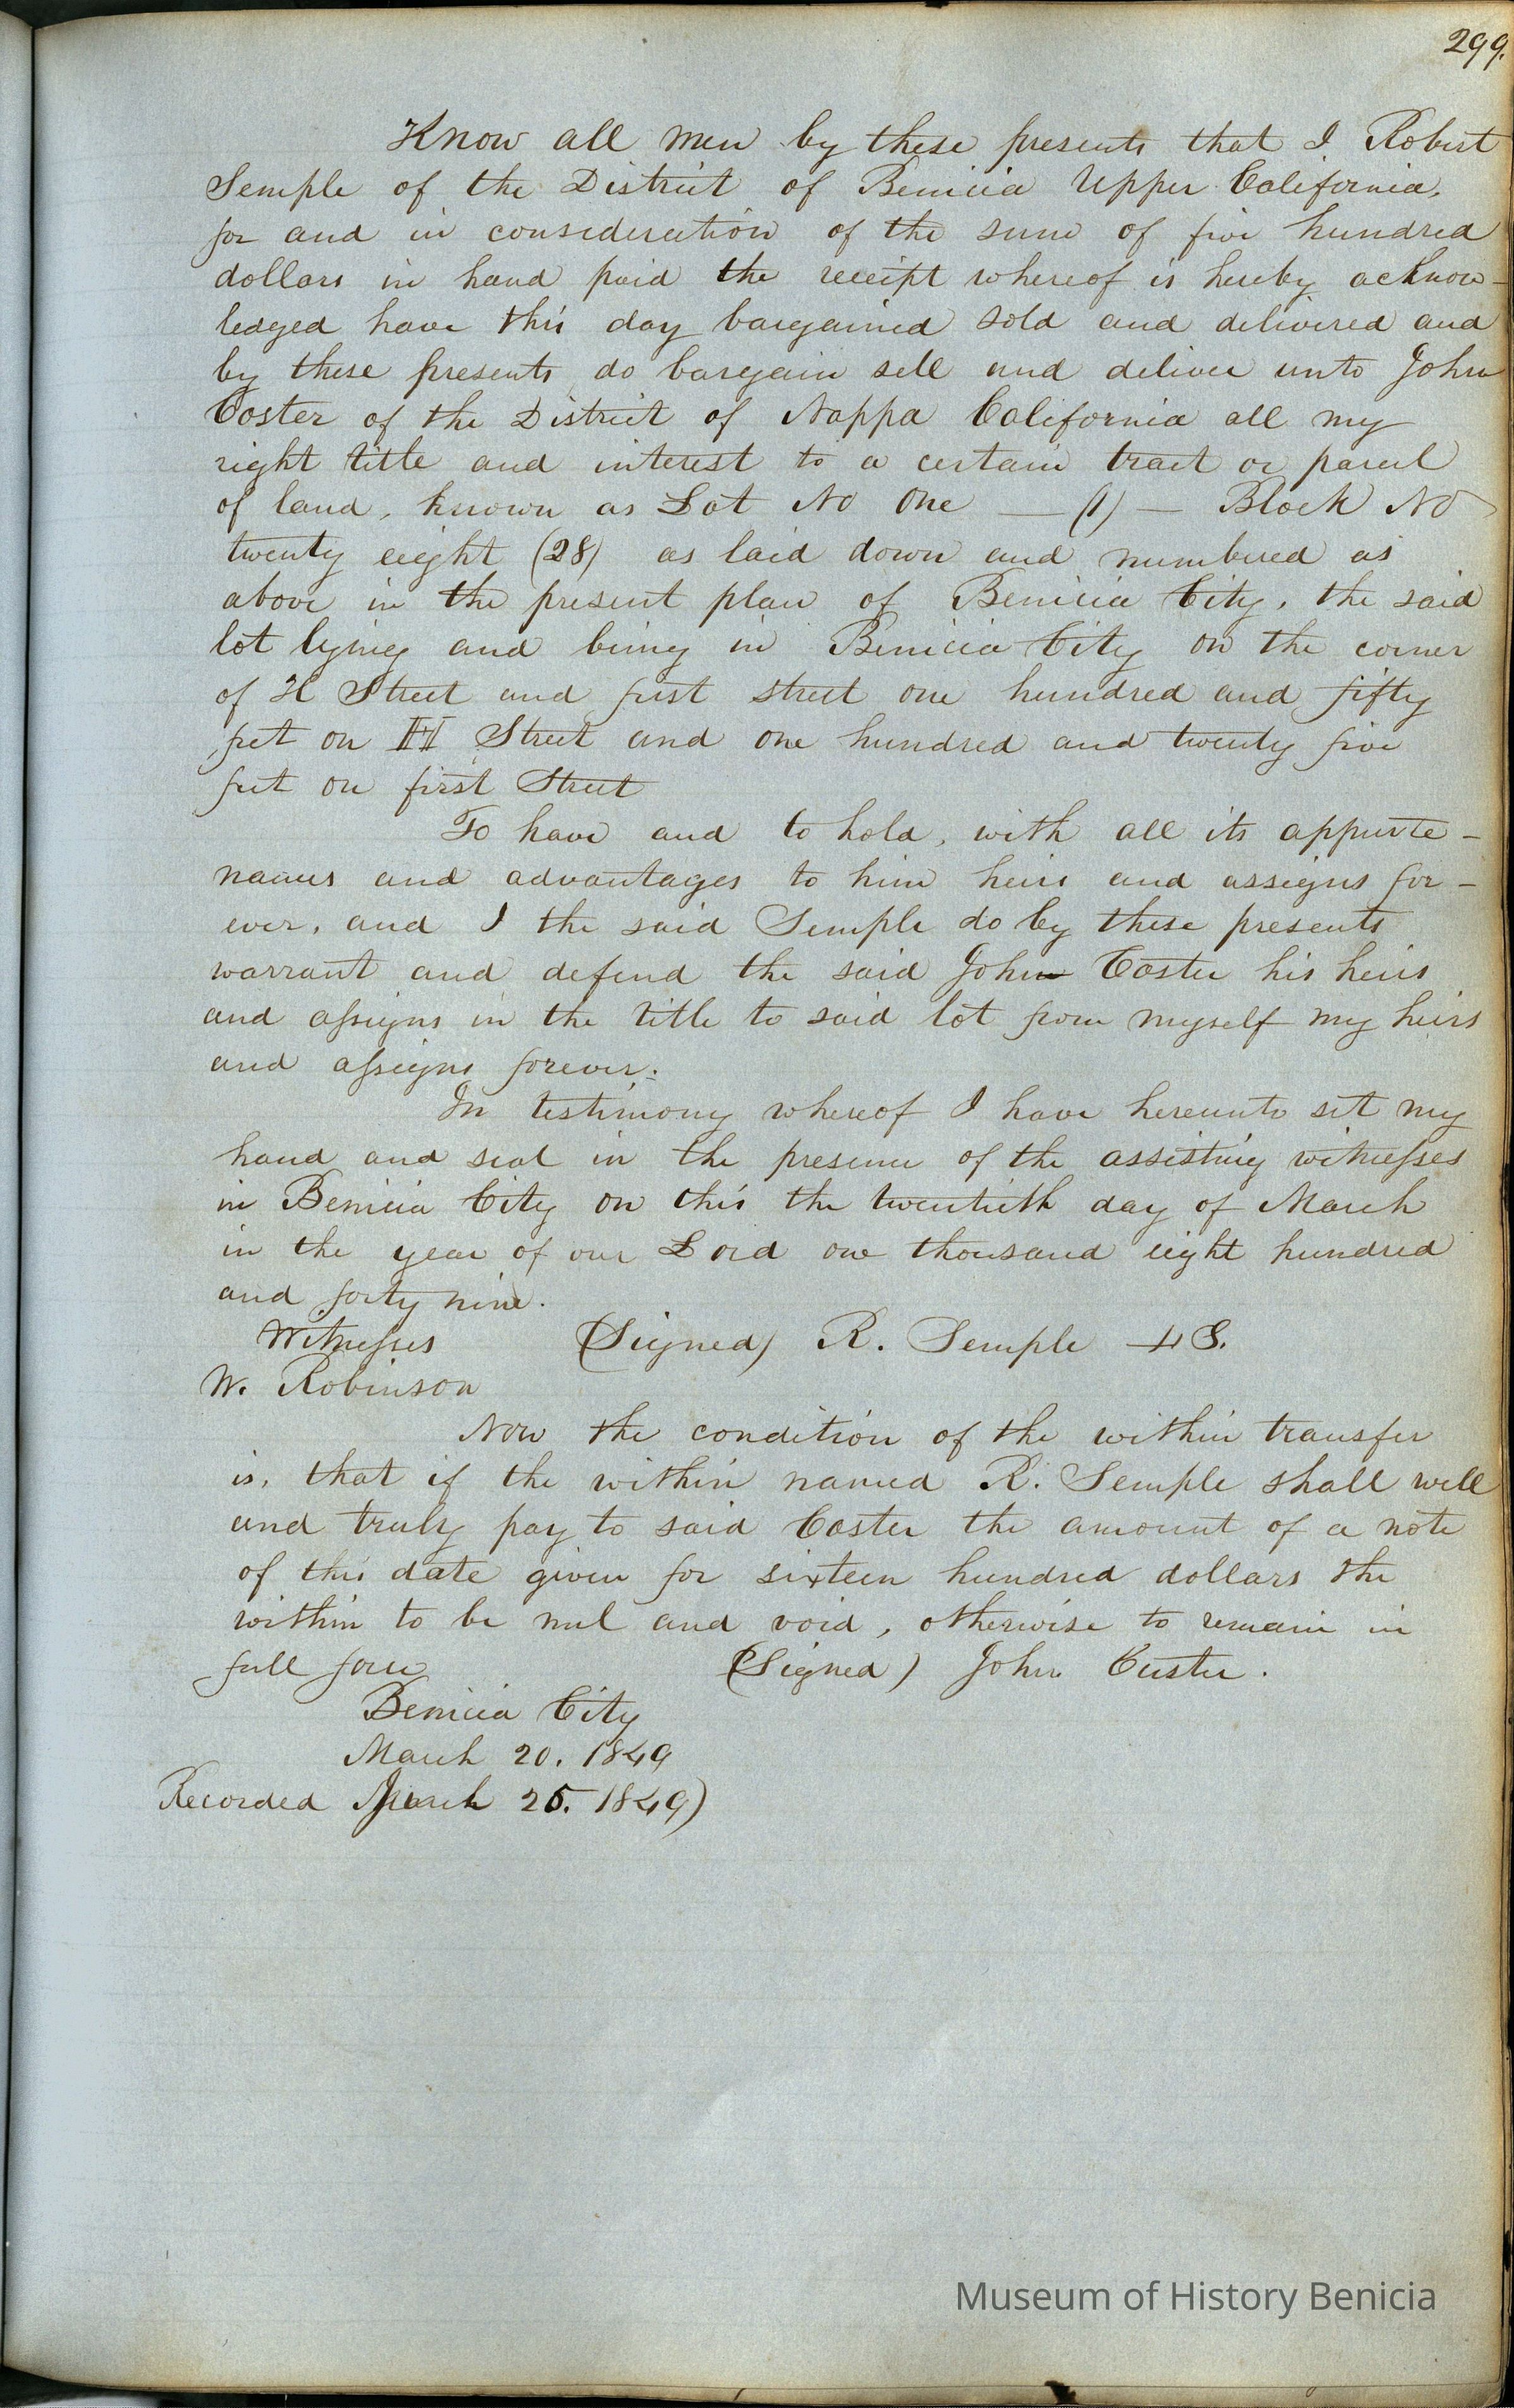 299.
Know all men by these presents that I Robert
Semple of the District of Benicia Upper California,
for and in consideration of the sum of five hundred
dollars in hand paid the receipt whereof is hereby acknow-
ledged have this day bargained sold and delivered and
by these presents do bargain sell and deliver unto John
Coster of the District of Nappa California all my
right title and interest to a certain tract or parcel
of land, known as Lot No One — (1) — Block No
twenty eight (28) as laid down and numbered as
above in the present plan of Benicia City, the said
lot lying and being in Benicia City on the corner
of H Street and first street one hundred and fifty
feet on H Street and one hundred and twenty five
feet on first Street
To have and to hold, with all its appurte-
nances and advantages to him heirs and assigns for-
ever, and I the said Semple do by these presents
warrant and defend the said John Coster his heirs
and assigns in the title to said lot from myself my heirs
and assigns forever.
In testimony whereof I have hereunto set my
hand and seal in the presence of the assisting witnesses
in Benicia City on this the twentieth day of March
in the year of our Lord one thousand eight hundred
and forty nine.
Witnesses (Signed) R. Semple LS.
W. Robinson
Now the condition of the within transfer
is, that if the within named R. Semple shall well
and truly pay to said Coster the amount of a note
of this date given for sixteen hundred dollars the
within to be nul and void, otherwise to remain in
full force (Signed) John Custer.
Benicia City
March 20. 1849
Recorded March 25. 1849)
Museum of History Benicia